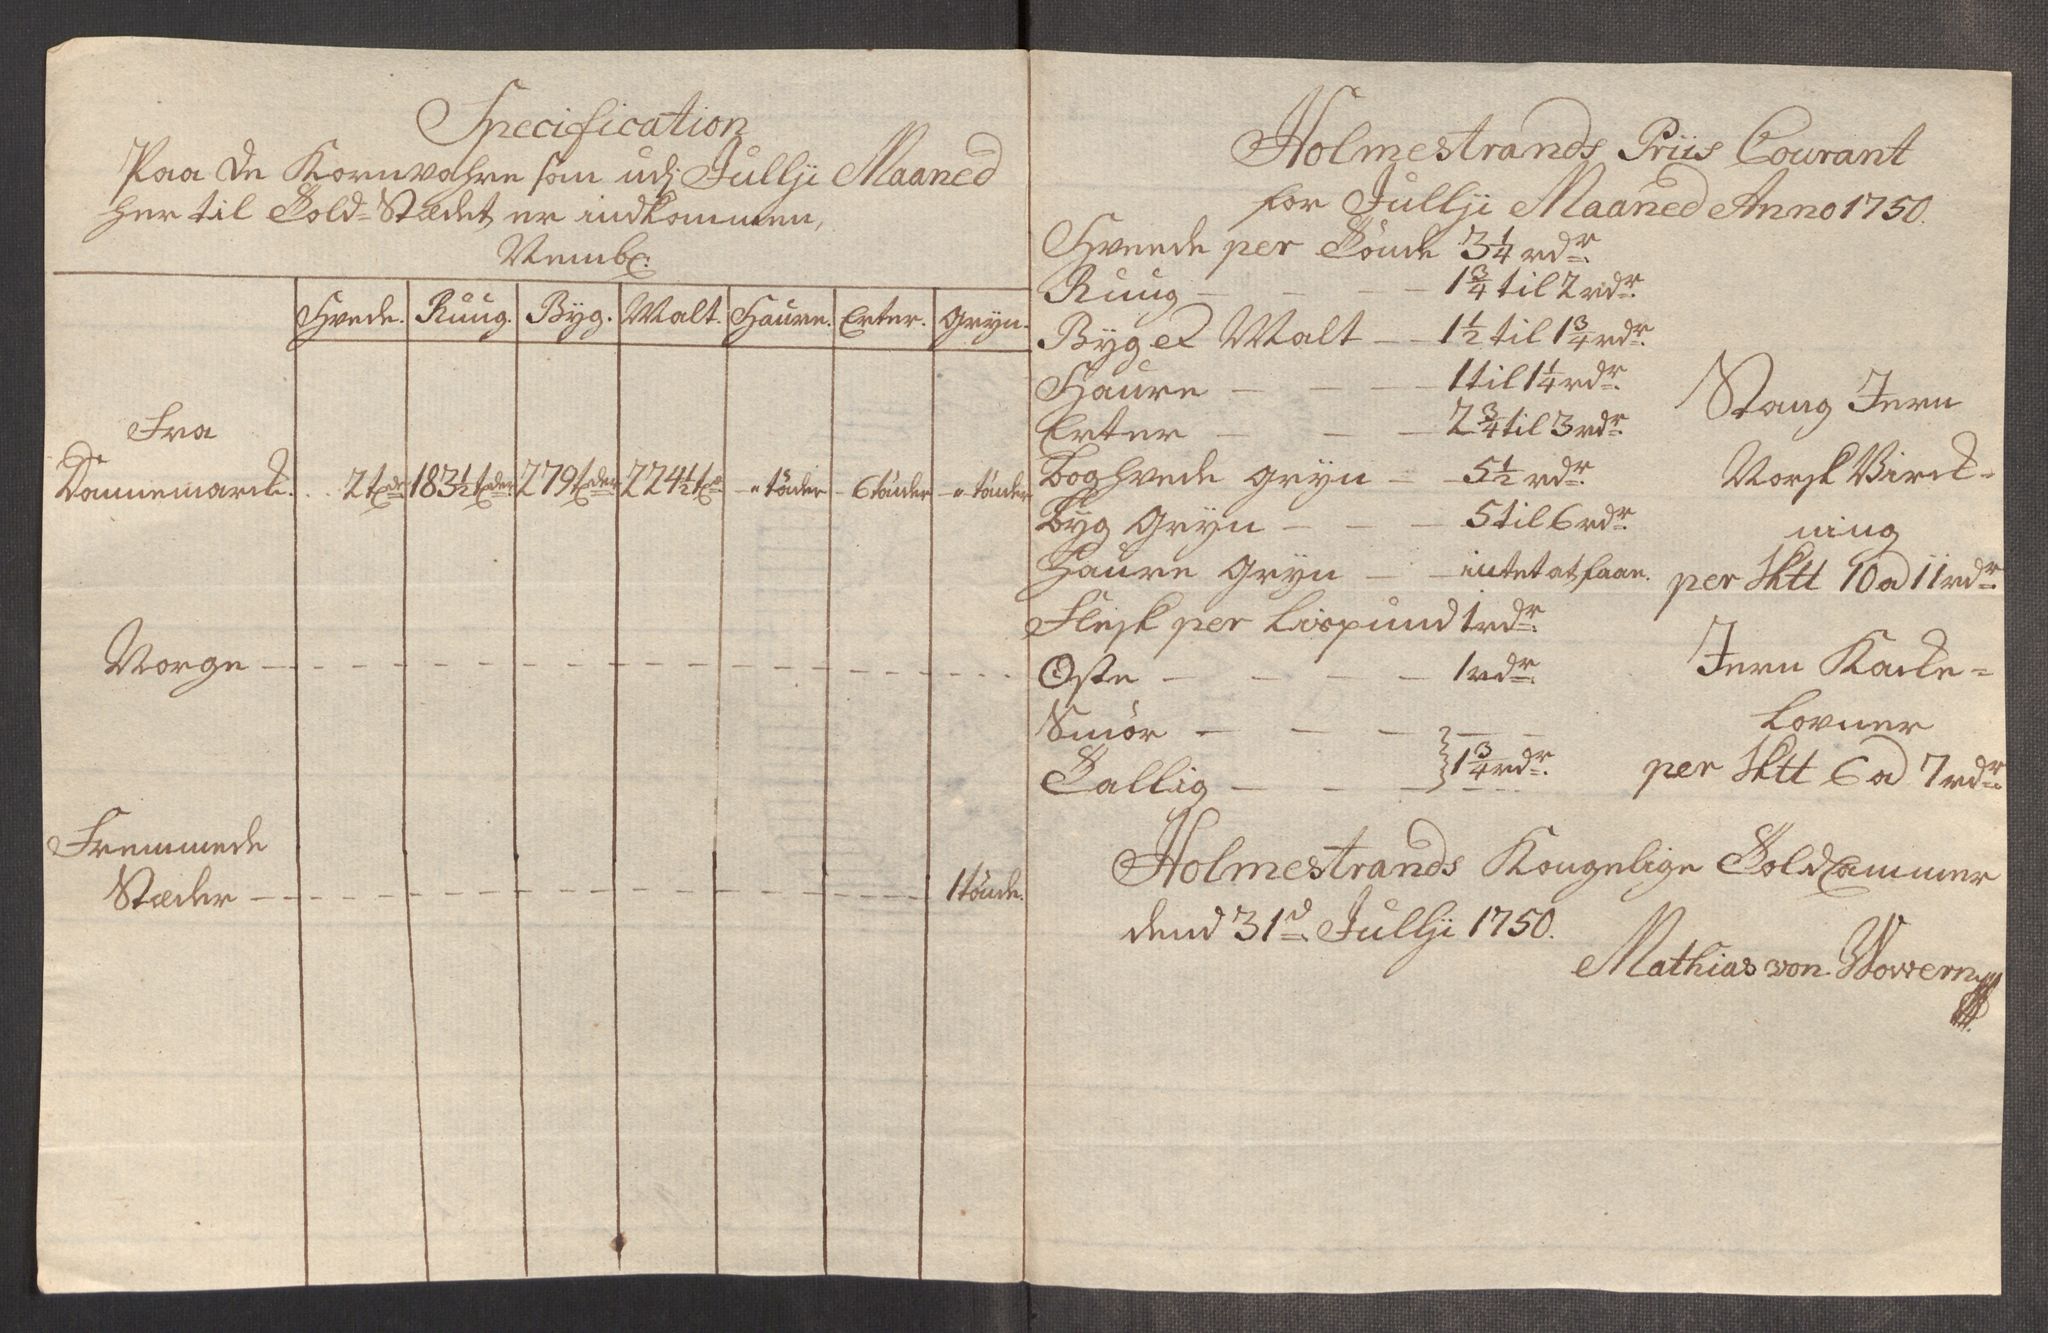 Specification
Paa de Kornvahre som udj Jullji Maaned
her til Told-Stædet er indkommen,
Nembl:
Hvede. Rüüg. Byg. Malt. Haure. Erter. Gryn.
Fra
Dannemarck. 2 tdr 183½ tdr 279 tdr 224½ tdr - " tönder - 6 tönder - " tönder
Norge
Fremmede
Stæder 1 tönde.
Holmestrands Priis Courant
for Jullji Maaned Anno 1750.
Hveede per Tönde 3¼ rdr.
Ruug 1¾ til 2 rdr.
Byg et Malt 1½ til 1¾ rdr.
Haure 1 til 1¼ rdr.
Erter 2¾ til 3 rdr.
Boghvede Gryn 5½ rdr.
Byg Gryn 5 til 6 rdr.
Haure Gryn intet at faae.
Flesk per Lispund 1 rdr.
Oste 1 rdr.
Smör
Tallig 1¾ rdr.
Stang Jern
Norsk Virck-
ning
per Sktt 10 a 11 rdr.
Jern Kacke-
lovner
per Sktt 6 a 7 rdr.
Holmestrands Kongelige Told Cammer
dend 31d Jullji 1750.
Mathias von Wowern